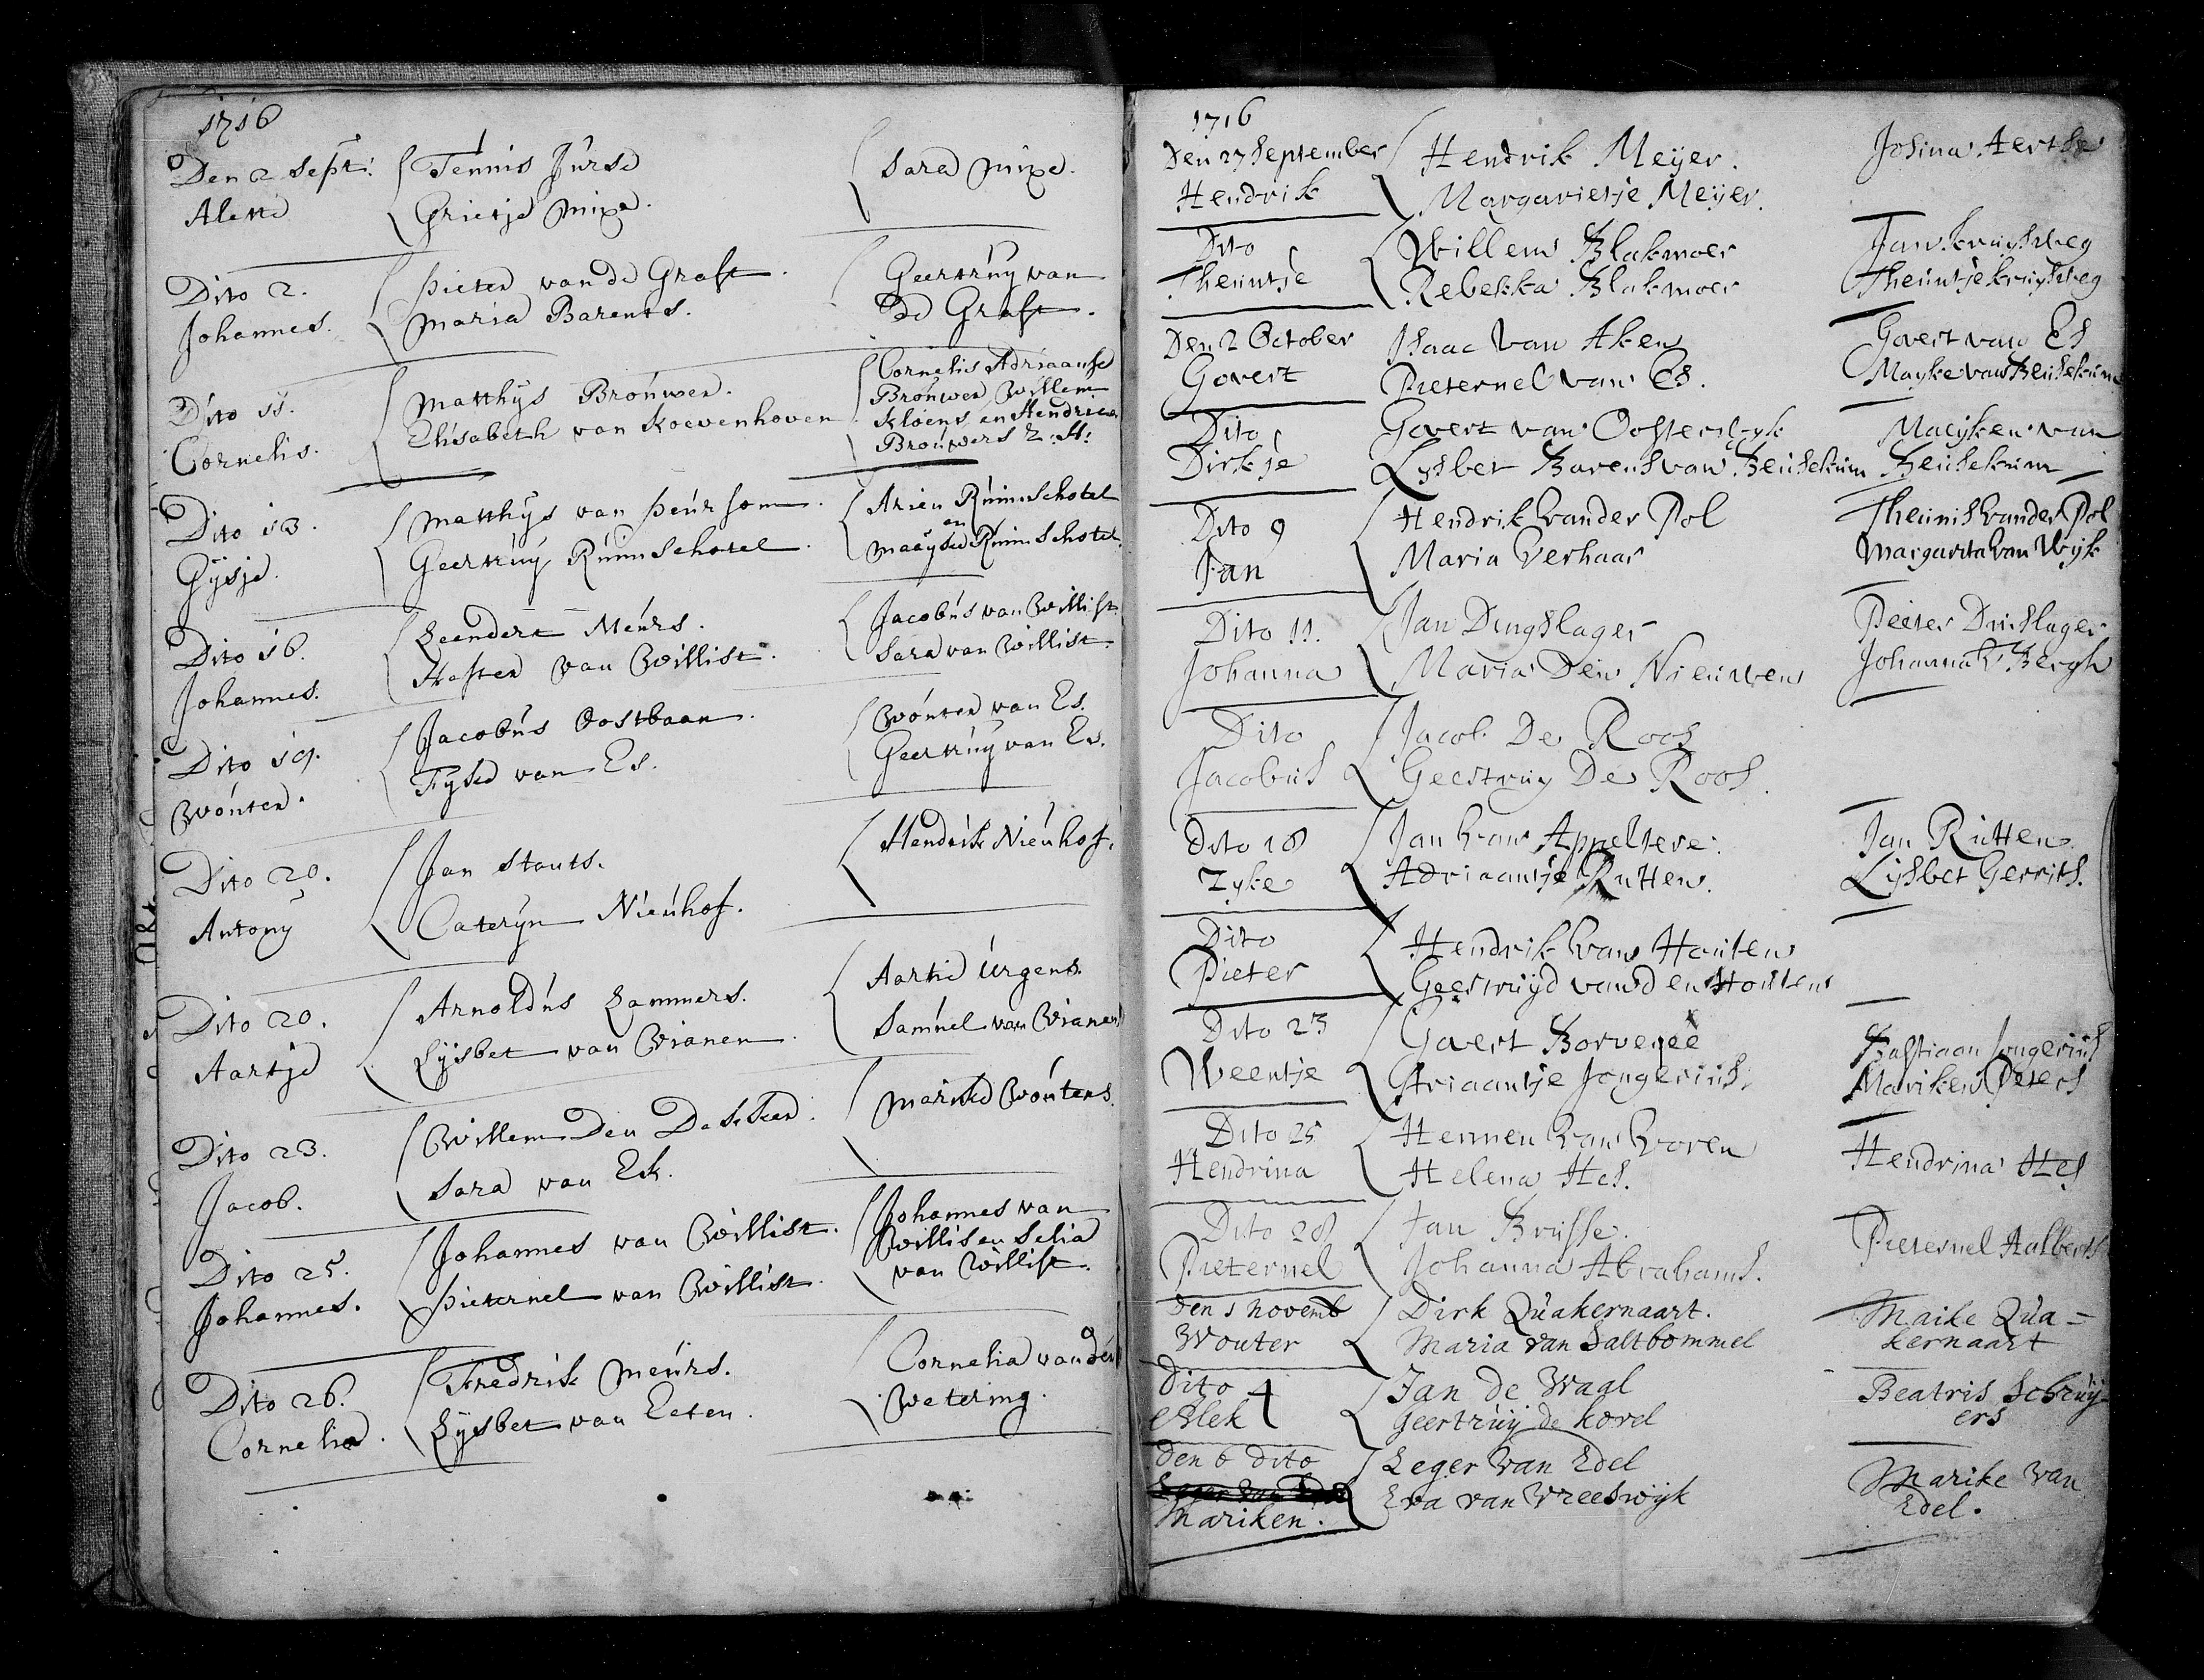 1716
Den 2 Sept: Tennis Jurse Sara Mixe.
Alette Grietje Mixe.
Dito 2. Pieter van de Graft. Geertruy van
Johannes. Maria Barents. de Graft.
Dito 11. Matthys Brouwer. Cornelis Adriaanse
Cornelis. Elisabeth van Koevenhoven Brouwer Willem
Kloens en Hendrica
Brouwers
Dito 13. Matthys van Peursom. Arien Ruimschotel
en
Gysje. Geertruy Ruimschotel. Maayke Ruimschotel.
Dito 16. Leendert Meurs. Jacobus van Willist
Johannes. Hester van Willist. Sara van Willist.
Dito 19. Jacobus Oostbaan. Wouter van Es.
Wouter. Fyke van Es. Geertruy van Es.
Dito 20. Jan Stouts. Hendrik Nieuhof.
Antony Cateryn Nieuhof.
Dito 20. Arnoldus Lammers. Aartie Urgens.
Aartje Lysbet van Vianen. Samuel van Vianen
Dito 23. Willem Den Wouters.
Jacob. Sara van Eck.
Dito 25. Johannes van Willist. Johannes van
Willis en Selia
Johannes. Pieternel van Willist. van Willist.
Dito 26. Fredrik Meurs. Cornelia van de
Cornelia. Lysbet van Eeten. Wetering.
1716
Den 27 September Hendrik Meyer. Josina Aertse
Hendrik Margarietje Meyer.
Dito Willem Blakmoer Jan Kruysweg
Theuntje Rebekka Blakmoer Theuntje Kruysweg
Den 2 October Isaac van Aken Govert van Es
Govert Pieternel van Es. Mayke van Beusekum
Dito Govert van Oosterwyk Maeyken van
Dirkje Lysbet Barens van Beusekum Beusekum
Dito 9 Hendrik vander Pol Theunis vander Pol
Jan Maria Verhaar Margarita van Wyk
Dito 11. Jan Dingslager Peeter
Johanna Maria Den Nieuwen Johanna V Bergh
Dito Jacob De Roos
Jacobus Geertruy De Roos.
Dito 18 Jan van Appeltere. Jan Rutten
Zyke Adriaantje Rutten. Lysbet Gerrits.
Dito Hendrik van Houten
Pieter Geertruyd van den Houten
Dito 23 Govert Borvegee Bastiaan Jongerius
Weentje Ariaantje Jongerius. Mariken Peters
Dito 25 Hermen van Voren Hendrina Hes
Hendrina Helena Hes.
Dito 28 Jan Brusse. Pieternel Aalberts
Pieternel Johanna Abrahams.
den 1 novemb Dirk Quakernaart. Maike Qua=
Wouter Maria van Saltbommel kernaart
Dito 4 Jan de Waal Beatris Schruy
Elek Geertruy de korel ers
den 6 dito Leger van Edel Marike van
Eva van Vreeswyk Edel.
Mariken.